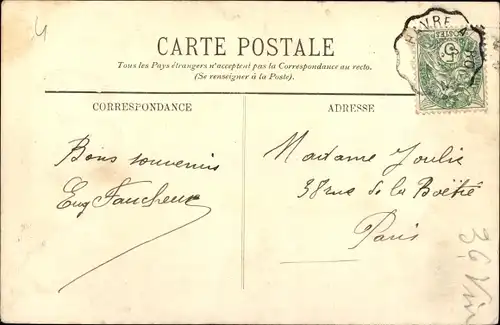 4
HAVRE A
CARTE POSTALE
Tous les Pays étrangers n'acceptent pas la Correspondance au recto.
(Se renseigner à la Poste).
CORRESPONDANCE
ADRESSE
Bons souvenirs
Eug Faucheux
Madame Joulie
38 rue de la Boëtie
Paris